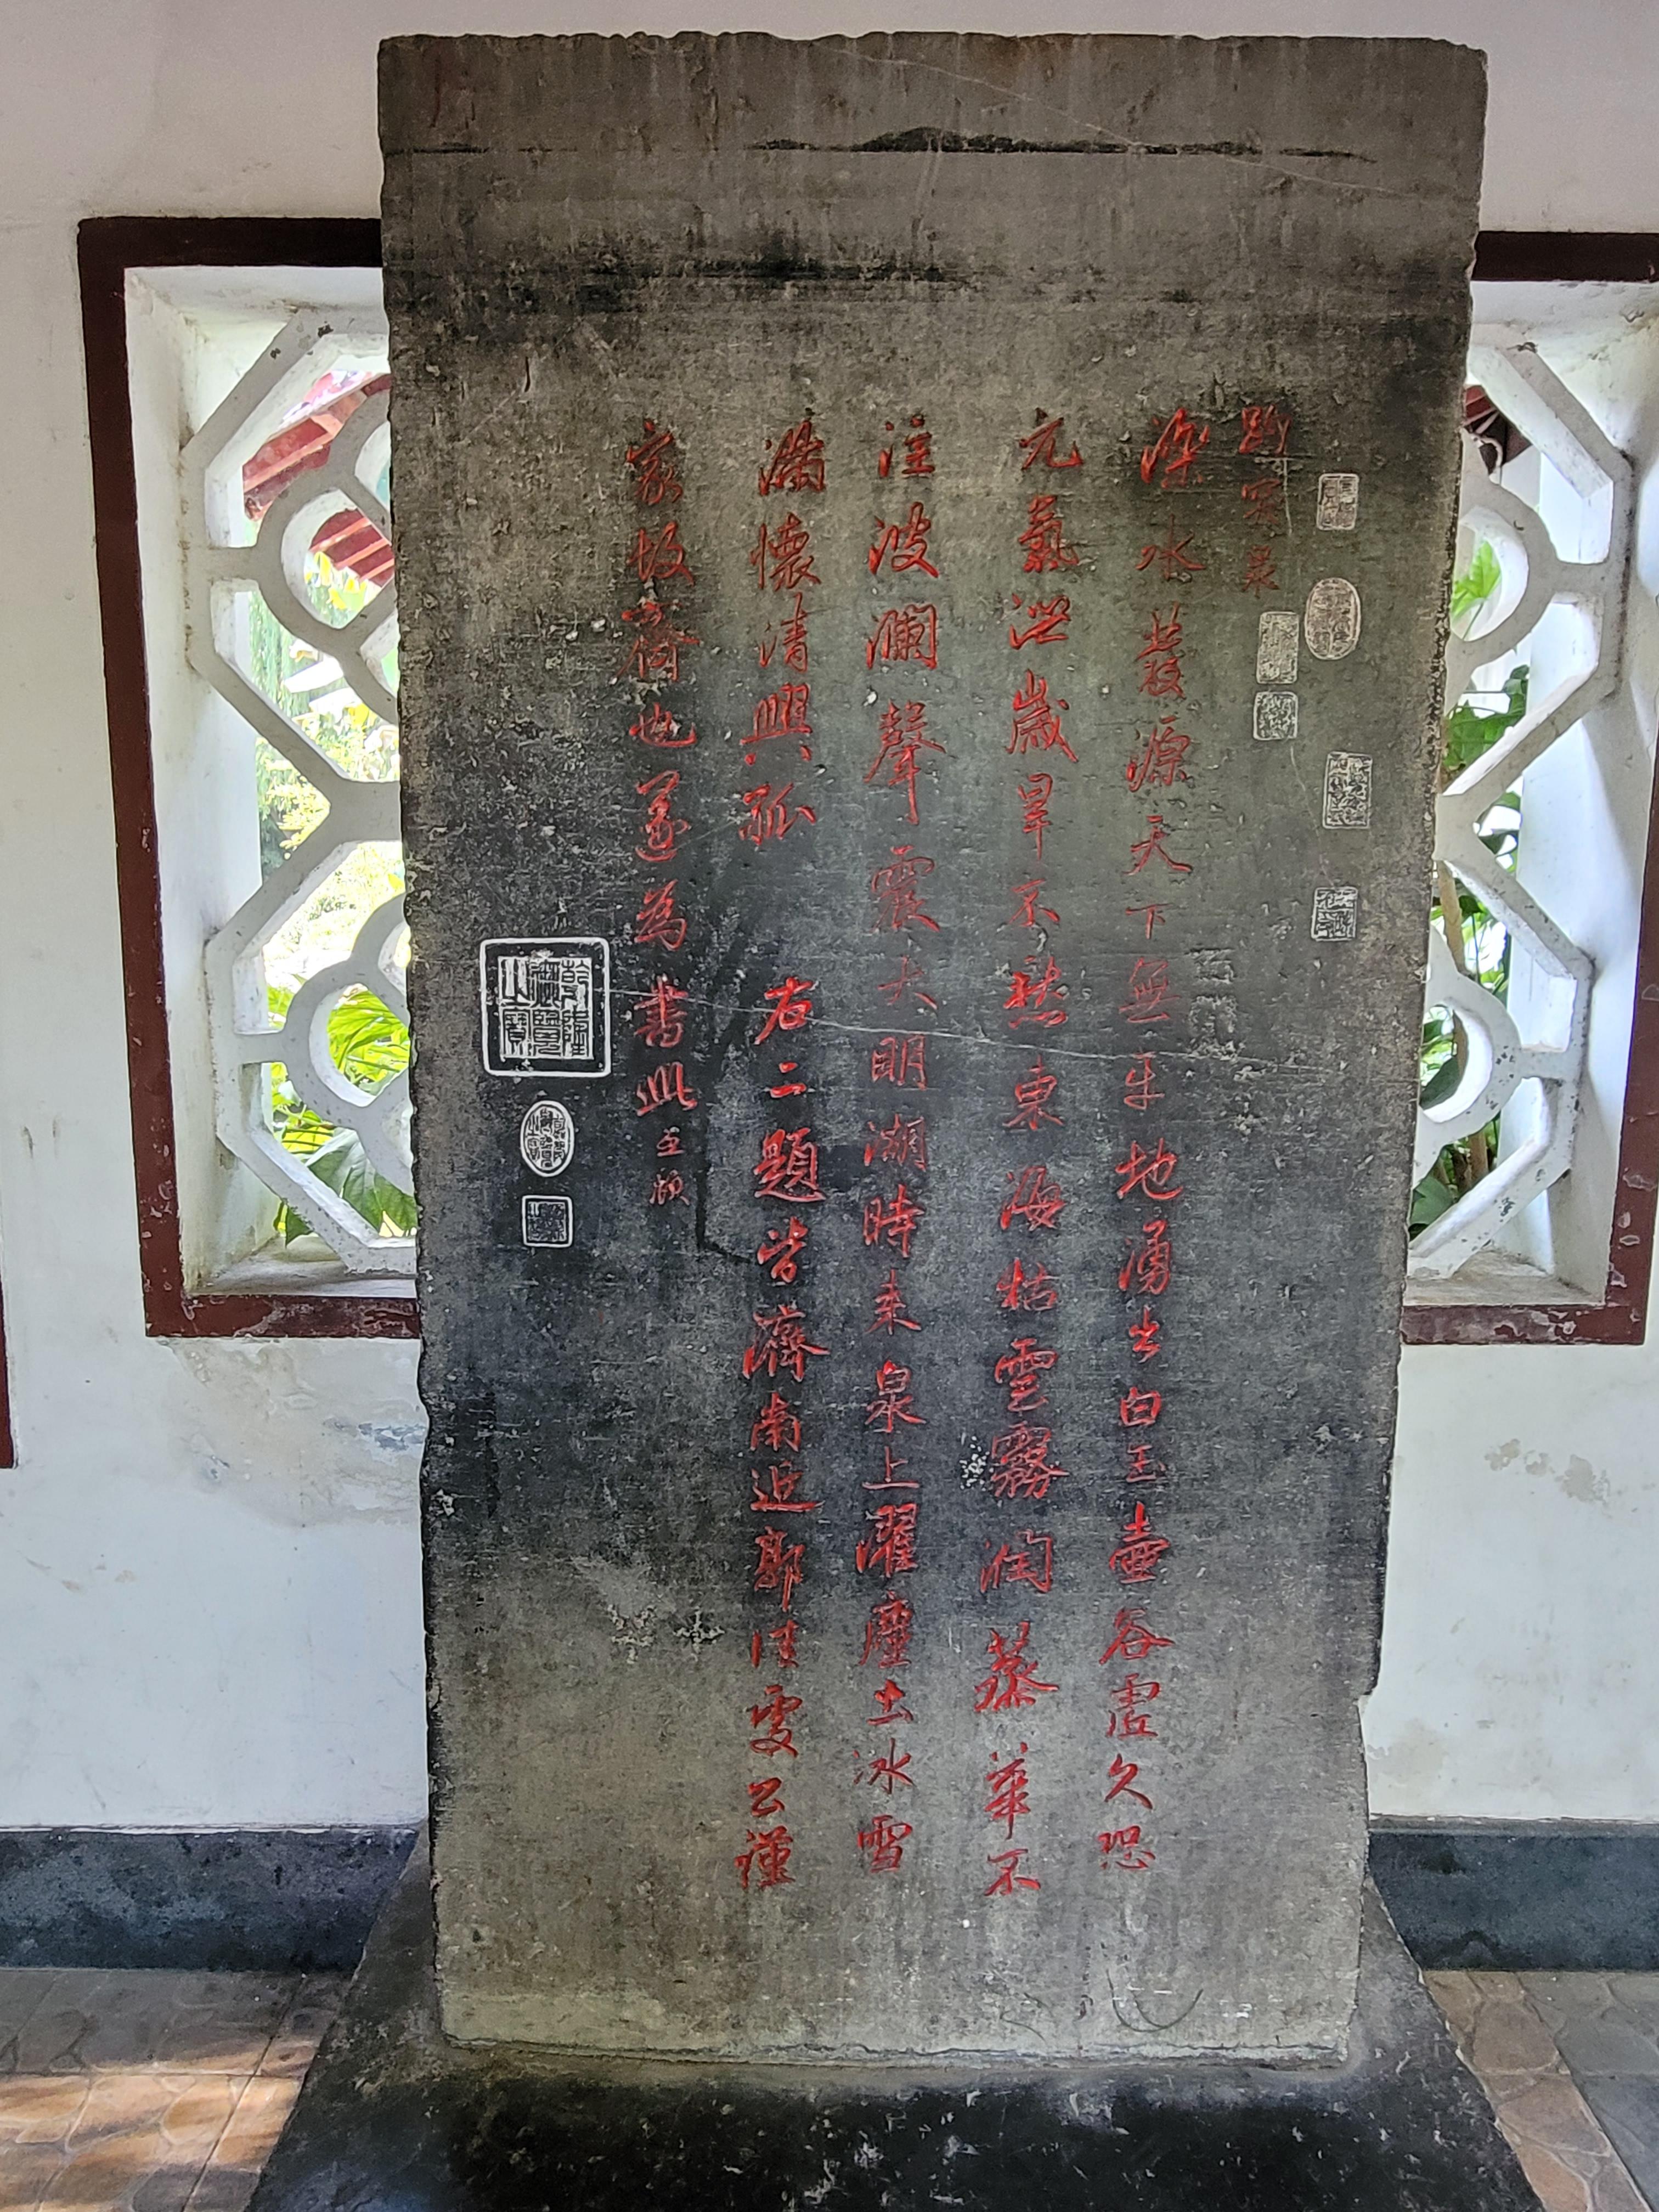 趵突泉
濼水發源天下無平地湧出白玉壺谷虛久恐
元氣洩歲旱不愁東海枯雲霧潤蒸華不
注波瀾聲震大明湖時來泉上濯塵土冰雪
滿懷清興孤 右二題皆濟南近郭佳處公謹
家故齊也遂為書此 孟頫
乾隆御覽之寶